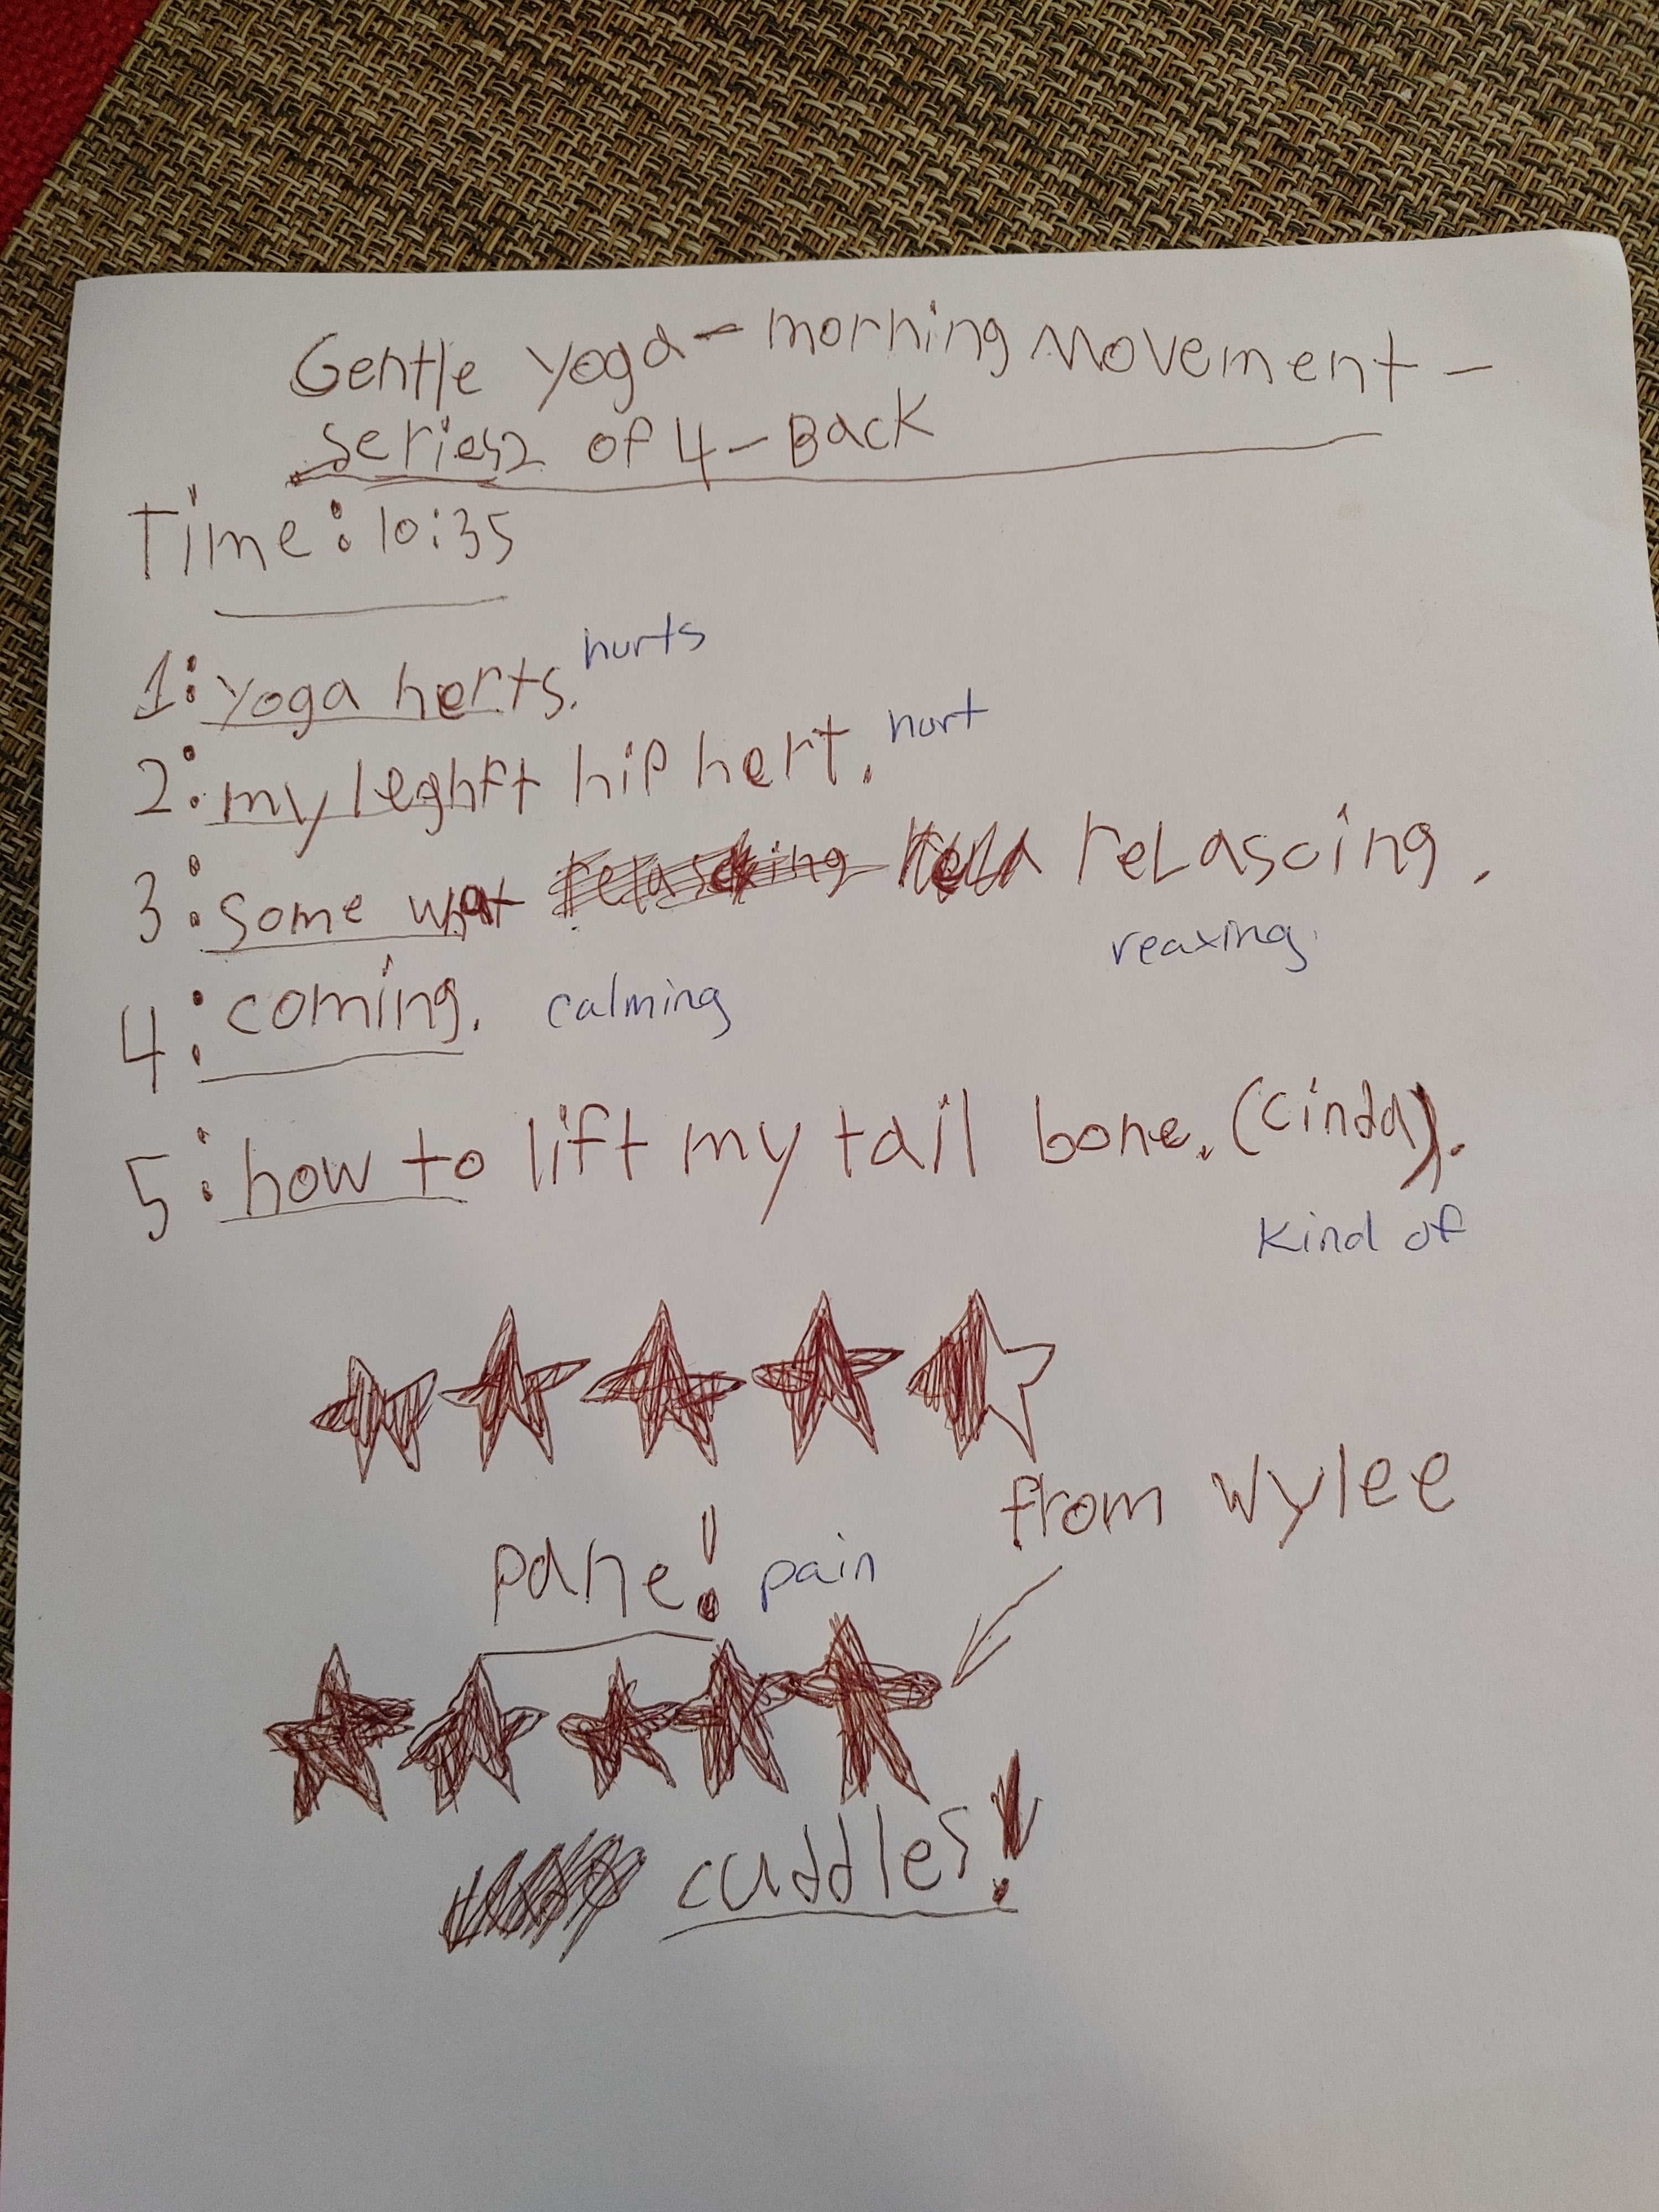 Gentle yoga - morning movement -
series 2 of 4 - Back
Time: 10:35
1: yoga herts. hurts
2: my leghft hip hert. hurt
3: some what relascing.
reaxing.
4: coming. calming
5: how to lift my tail bone. (cinda).
Kind of
from wylee
pane! pain
cuddles!